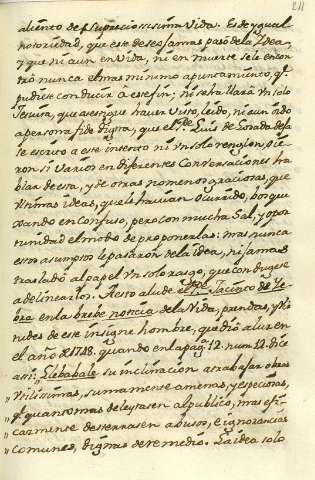 211
aliento de su preciosissima Vida. Es de ygual
notoriedad, que este deseo jamas pasó de la Ydea,
y que ni aun en Vida, ni en muerte se le encon
tró nunca el mas minimo apuntamiento, q.e
pudiese conducir à este fin; ni se hallará Vn solo
Jesuita, que asegure haver Visto, leido, ni aun oido
a persona fidedigna, que el P.e Luis de Losada dexa
se escrito a este intento ni Vn solo renglon. Oie
ron si Varios en diferentes Conversaciones ha
blar de esta, y de otras no menos graciosas, que
Vtilisimas ideas, que le havian ocurrido, bosque
xando en confuso, pero con mucha Sal, y opor
tunidad el modo de proponerlas: mas nunca
estos asumptos le pasaron de la idea, ni jamas
trasladó al papel Vn solo rasgo, que condugese
a delinearlos. A esto alude el P.e Jacinto de Ze
bra en la breve noticia de la Vida, prendas, y Vir
tudes de este insigne hombre, que dió a luz en
el año de 1748. quando en la pag.a 12. num. 12. dice
assi: Llebabale su inclinacion a trabajar obras
" Vtilissimas, sumamente amenas, y especiosas,
" q.e quanto mas deleytasen al publico, mas efi
" cazmente desterrasen abusos, e ignorancias
" comunes, dignas de remedio. La idea solo